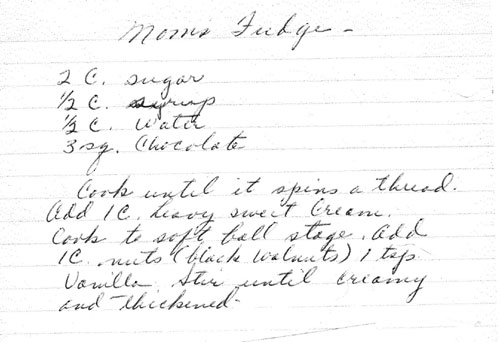 Moms Fudge -
2 C. sugar
1/2 C. syrup
1/2 C. Water
3 sq. Chocolate
Cook until it spins a thread.
Add 1 C. heavy sweet Cream.
Cook to soft ball stage. Add
1 C. nuts (black walnuts) 1 tsp
Vanilla. Stir until creamy
and thickened-